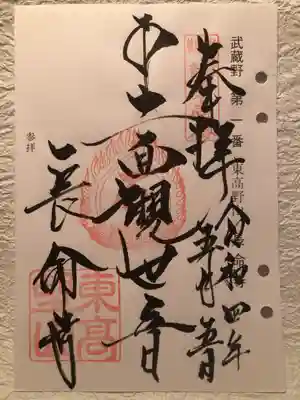 武蔵野 第一番 東高野
奉拝
令和四年
五月五日
十一面觀世音
長命寺
参拝
東高
山